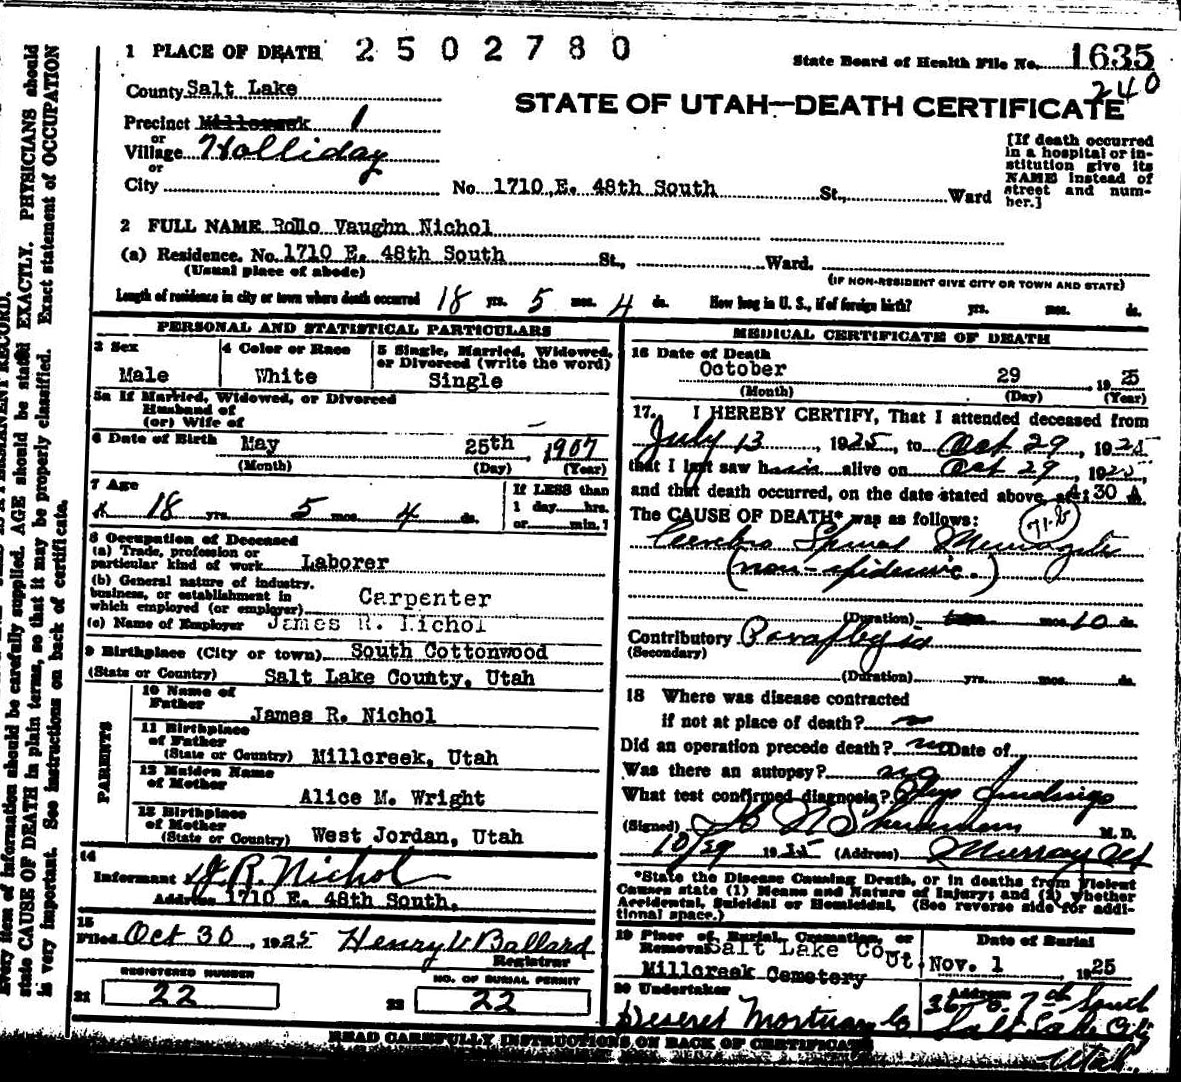 1 PLACE OF DEATH 2502780
State Board of Health File No. 1635
240
County Salt Lake
STATE OF UTAH—DEATH CERTIFICATE
Precinct Millcreek 1
or
Village Holliday
or
City No. 1710 E. 48th South St., Ward
[If death occurred
in a hospital or in-
stitution give its
NAME instead of
street and num-
ber.]
2 FULL NAME Rollo Vaughn Nichol
(a) Residence. No. 1710 E. 48th South St., Ward.
(Usual place of abode)
(IF NON-RESIDENT GIVE CITY OR TOWN AND STATE)
Length of residence in city or town where death occurred 18 yrs. 5 mos. 4 ds. How long in U. S., if of foreign birth? yrs. mos. ds.
PERSONAL AND STATISTICAL PARTICULARS
3 Sex
Male
4 Color or Race
White
5 Single, Married, Widowed,
or Divorced (write the word)
Single
5a If Married, Widowed, or Divorced
Husband of
(or) Wife of
6 Date of Birth May 25th, 1907
(Month) (Day) (Year)
7 Age
18 yrs. 5 mos. 4 ds.
If LESS than
1 day hrs.
or min.?
8 Occupation of Deceased
(a) Trade, profession or
particular kind of work Laborer
(b) General nature of industry,
business, or establishment in
which employed (or employer) Carpenter
(c) Name of Employer James R. Nichol
9 Birthplace (City or town) South Cottonwood
(State or Country) Salt Lake County, Utah
PARENTS
10 Name of
Father James R. Nichol
11 Birthplace
of Father
(State or Country) Millcreek, Utah
12 Maiden Name
of Mother Alice M. Wright
13 Birthplace
of Mother
(State or Country) West Jordan, Utah
14
Informant J. R. Nichol
Address 1710 E. 48th South.
15
Filed Oct 30, 1925 Henry W Ballard
Registrar
REGISTERED NUMBER
21 22
NO. OF BURIAL PERMIT
22 22
MEDICAL CERTIFICATE OF DEATH
16 Date of Death
October 29, 1925
(Month) (Day) (Year)
17. I HEREBY CERTIFY, That I attended deceased from
July 13, 1925, to Oct 29, 1925
that I last saw him alive on Oct 29, 1925,
and that death occurred, on the date stated above, at 4:30 A.
The CAUSE OF DEATH* was as follows:
71-b
Cerebro Spinal Meningitis
(non-epidemic.)
(Duration) mos. 10 ds.
Contributory Paraplegia
(Secondary)
(Duration) yrs. mos. ds.
18 Where was disease contracted
if not at place of death?
Did an operation precede death? no Date of
Was there an autopsy? no
What test confirmed diagnosis? Phys findings
(Signed) M. D.
10/29 1925 (Address) Murray Ut
*State the Disease Causing Death, or in deaths from Violent
Causes state (1) Means and Nature of Injury; and (2) whether
Accidental, Suicidal or Homicidal. (See reverse side for addi-
tional space.)
19 Place of Burial, Cremation, or
Removal Salt Lake Co Ut.
Millcreek Cemetery
Date of Burial
Nov. 1, 1925
20 Undertaker
Deseret Mortuary Co
Address
36 E. 7th South
Salt Lake City
Utah.
READ CAREFULLY INSTRUCTIONS ON BACK OF CERTIFICATE
PERMANENT RECORD.
Every item of information should be carefully supplied. AGE should be stated EXACTLY. PHYSICIANS should
state CAUSE OF DEATH in plain terms, so that it may be properly classified. Exact statement of OCCUPATION
is very important. See instructions on back of certificate.